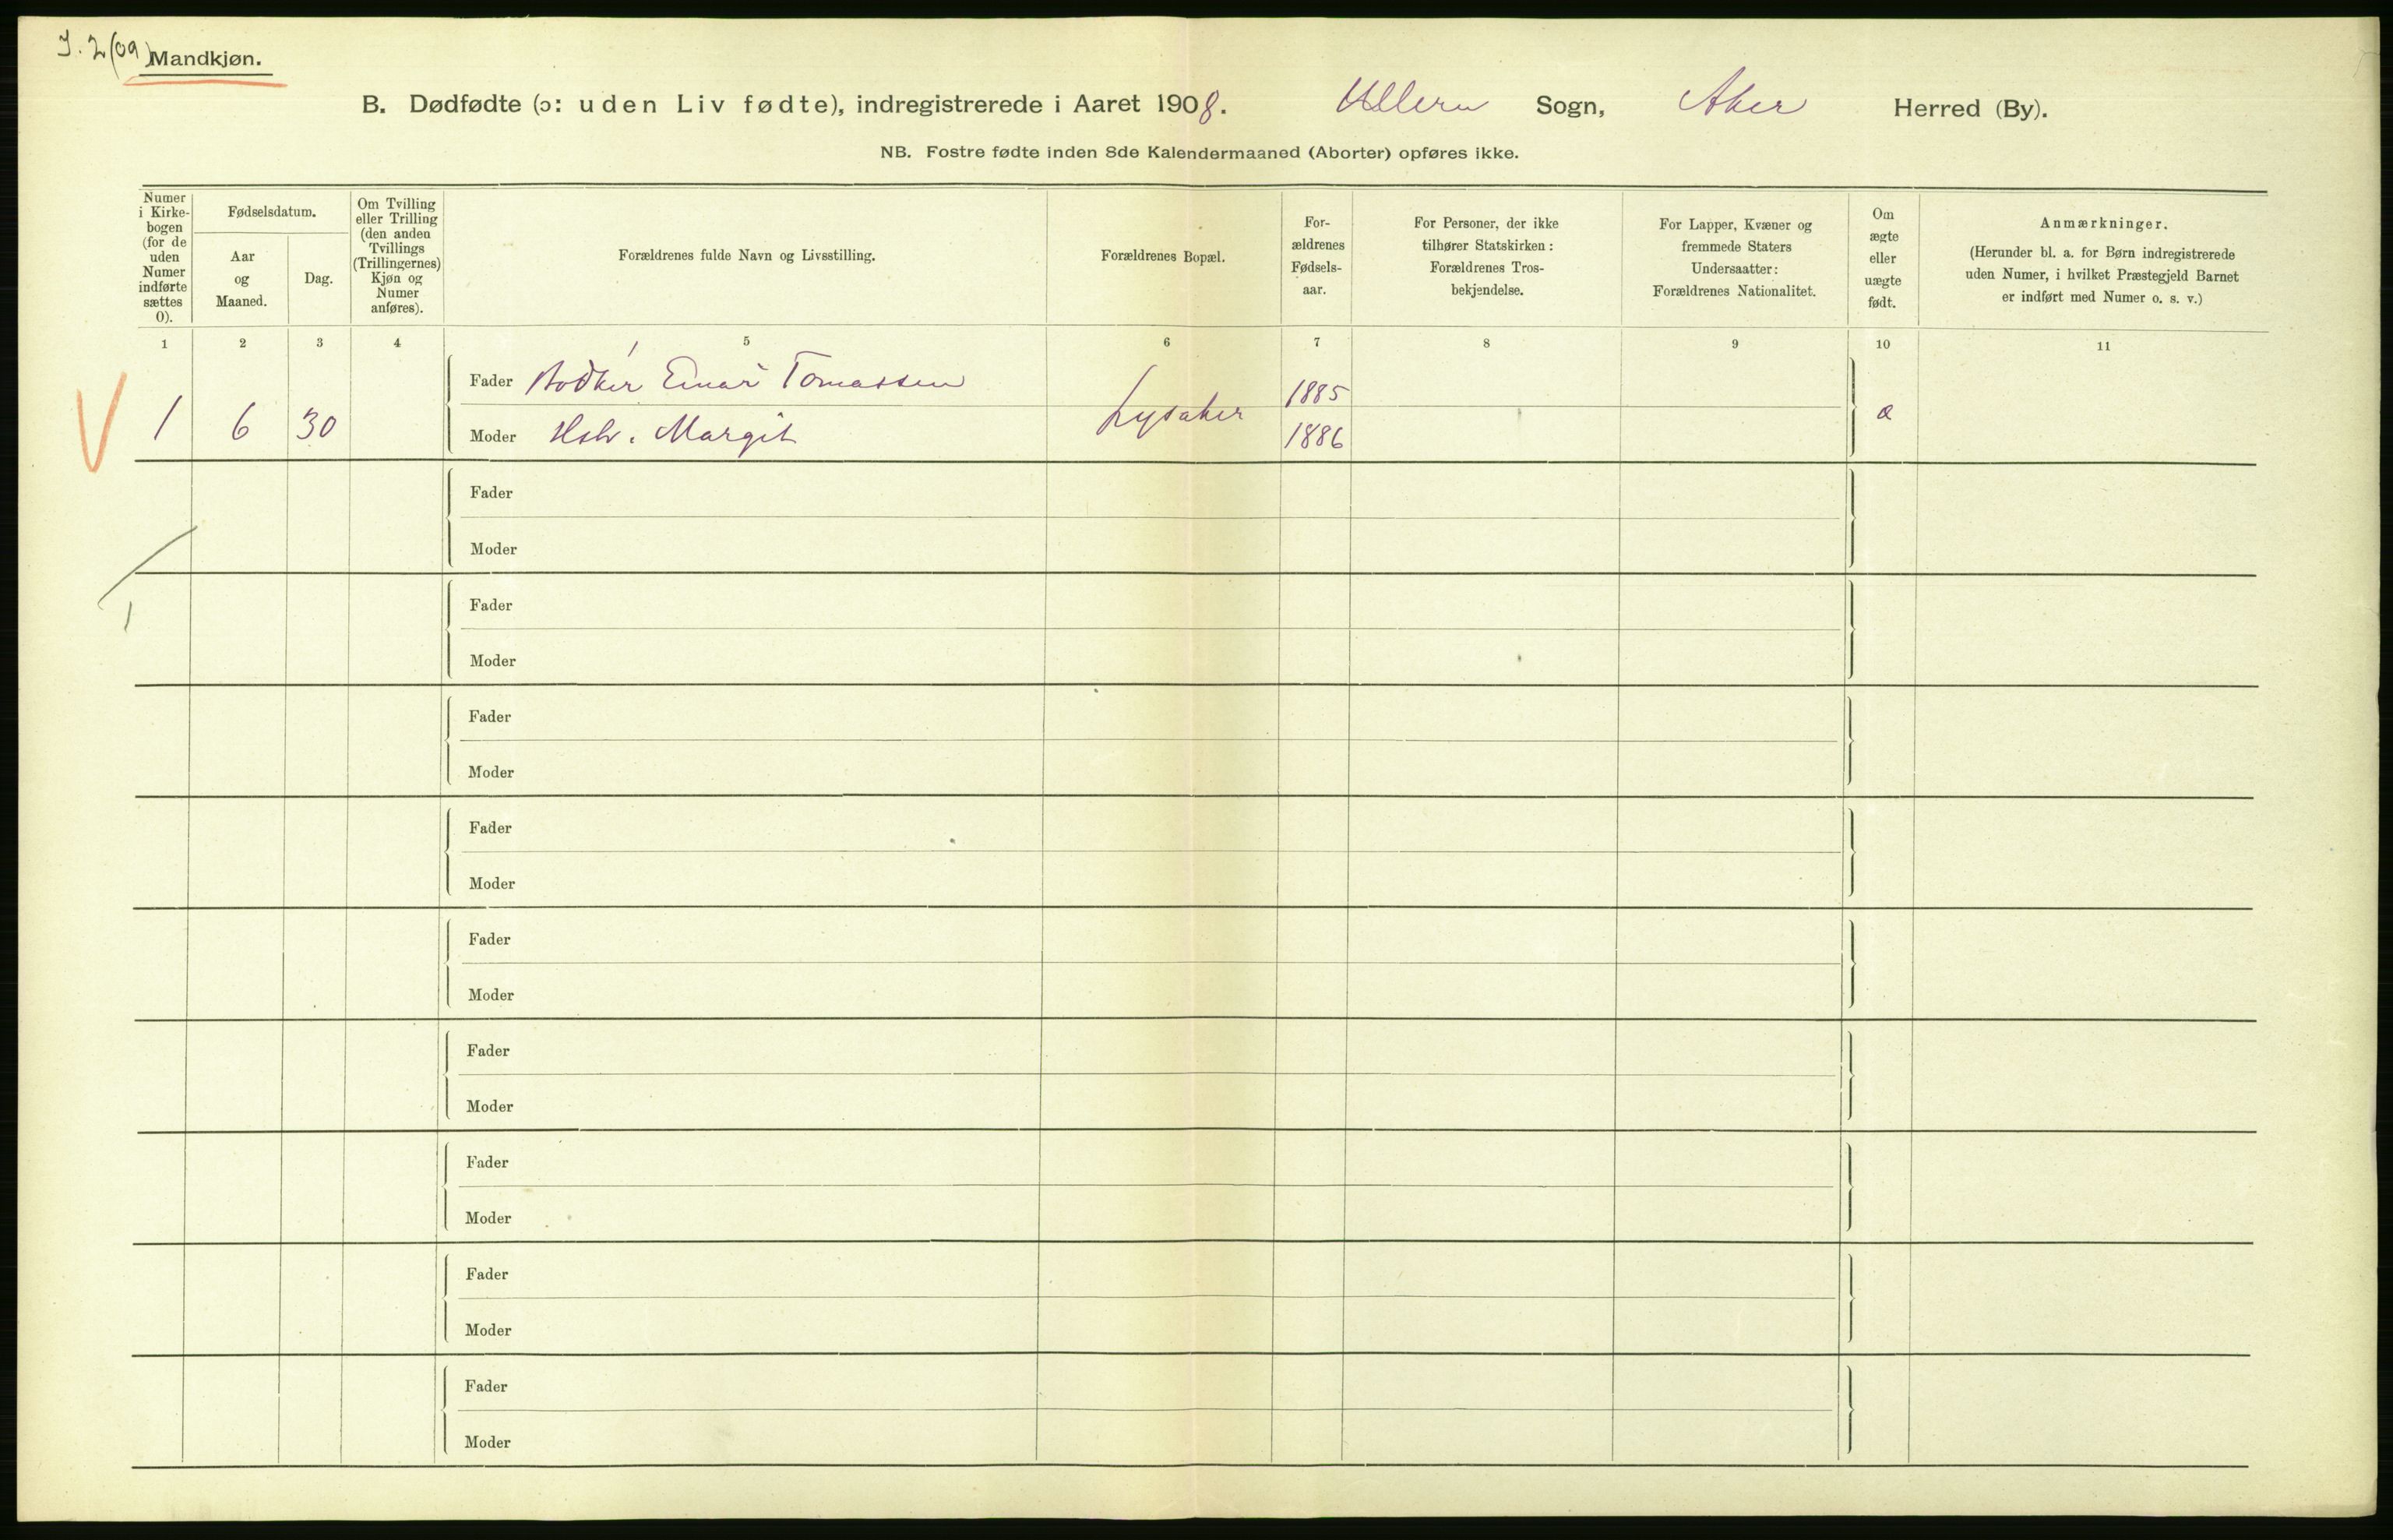 J. 2(09)
Mandkjøn.
B. Dødfødte (ɔ: uden Liv fødte), indregistrerede i Aaret 1908. Ullern Sogn, Aker Herred (By).
NB. Fostre fødte inden 8de Kalendermaaned (Aborter) opføres ikke.
Numer
i Kirke-
bogen
(for de
uden
Numer
indførte
sættes
0).
Fødselsdatum.
Aar
og
Maaned.
Dag.
Om Tvilling
eller Trilling
(den anden
Tvillings
(Trillingernes)
Kjøn og
Numer
anføres).
Forældrenes fulde Navn og Livsstilling.
Forældrenes Bopæl.
For-
ældrenes
Fødsels-
aar.
For Personer, der ikke
tilhører Statskirken:
Forældrenes Tros-
bekjendelse.
For Lapper, Kvæner og
fremmede Staters
Undersaatter:
Forældrenes Nationalitet.
Om
ægte
eller
uægte
født.
Anmærkninger.
(Herunder bl. a. for Børn indregistrerede
uden Numer, i hvilket Præstegjeld Barnet
er indført med Numer o. s. v.)
1 2 3 4 5 6 7 8 9 10 11
Fader Bødker Einar Tomassen 1885
1 6 30 Lysaker æ
Moder Hstr. Margit 1886
Fader
Moder
1
Fader
Moder
Fader
Moder
Fader
Moder
Fader
Moder
Fader
Moder
Fader
Moder
Fader
Moder
Fader
Moder